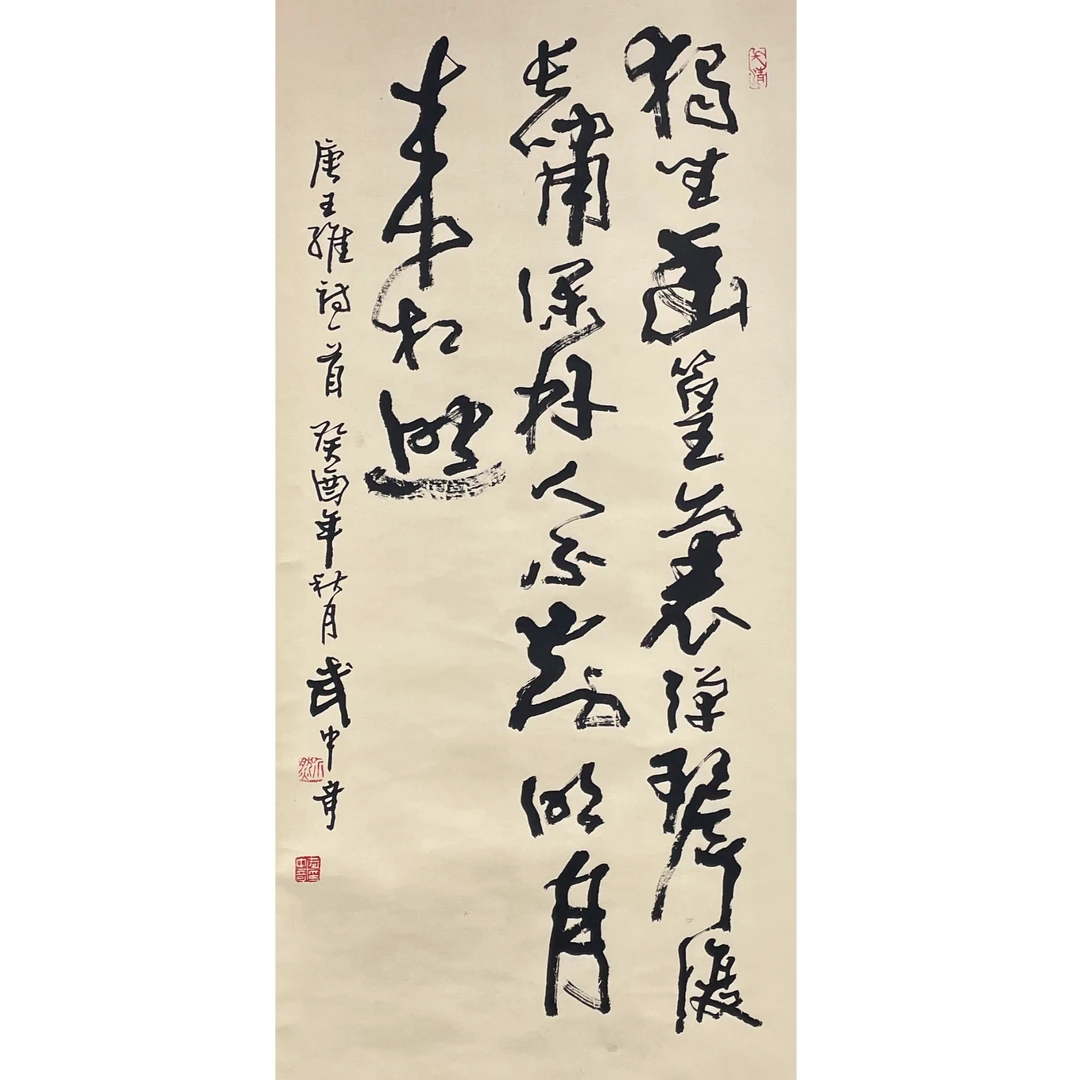 独坐幽篁裏弹琴復
長嘯深林人不知明月
来相照
唐王維诗一首 癸酉年秋月 武中奇